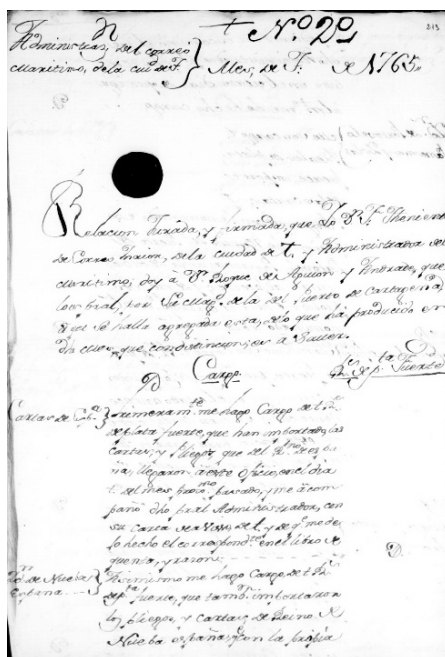 + N.º 2º
213
Administraz.ⁿ del correo
maritimo, de la ciu.ᵈ de T.
Mes, de T. de N1765.
Relacion Jurada, y firmada, que Yo Dⁿ F. Theniente
de Correo maior, de la ciudad de t. y Administrador del
maritimo; doy â Dⁿ Roque de Aguion y Andrade, que
lo es pral, por Su Mag.ᵈ de la del Puerto de Cartagena,
â que se halla agregada esta, de lo que ha producido en
dho mes, que con distincion, es â saver.
Cargo.
R.ˢ de p.ᵗᵃ Fuerte
Cartas de Esp.ᵃ
Primeram.ᵗᵉ me hago Cargo de t R.ˢ
de plata fuerte, que han importado, las
cartas, y pliegos, que del R.ⁿᵒ de Espa
ña, llegaron â este oficio, en el dia
t. del mes, prox.ᵐᵒ pasado, y me acom
pañó dho pral Administrador, con
su carta de aviso, de t, y de q.ᵉ me de
jo hecho el correspond.ᵗᵉ en el libro de
quenta, y razon.
Yd.ᵐ de Nueba
España
Asimismo me hago Cargo, de t R.ˢ
de p.ᵗᵃ fuerte, que tamb.ⁿ importaron
los pliegos, y cartas, de Reino de
Nueba españa, con la propia